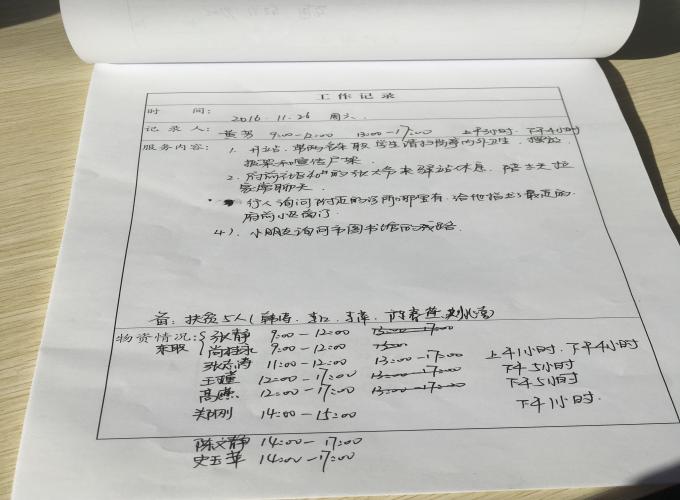 工作记录
时 间: 2016.11.26 周六.
记录人: 黄芳 9:00-12:00 13:00-17:00 上午3小时.下午4小时
服务内容: 1. 开站.带两名东联学生清扫岗亭内外卫生,摆放
报架和宣传广架.
2. 府前社区40的张大爷来驿站休息,陪老人拉
家常聊天.
行人询问附近的诊所哪里有.给他指出了最近的
府前小区南门.
4). 小朋友询问市图书馆的线路.
备:扶贫5人(
物资情况: 张静 9:00-12:00 13:00-17:00
东联 尚桂永 9:00-12:00 13:00
张志涛 11:00-12:00 13:00-17:00 上午1小时.下午4小时
王瞳 12:00-17:00 13:00-17:00 下午5小时
高赓 12:00-17:00 13:00-17:00 下午5小时
郑刚 14:00-15:00 下午1小时.
陈文静 14:00-17:00
史玉苹 14:00-17:00